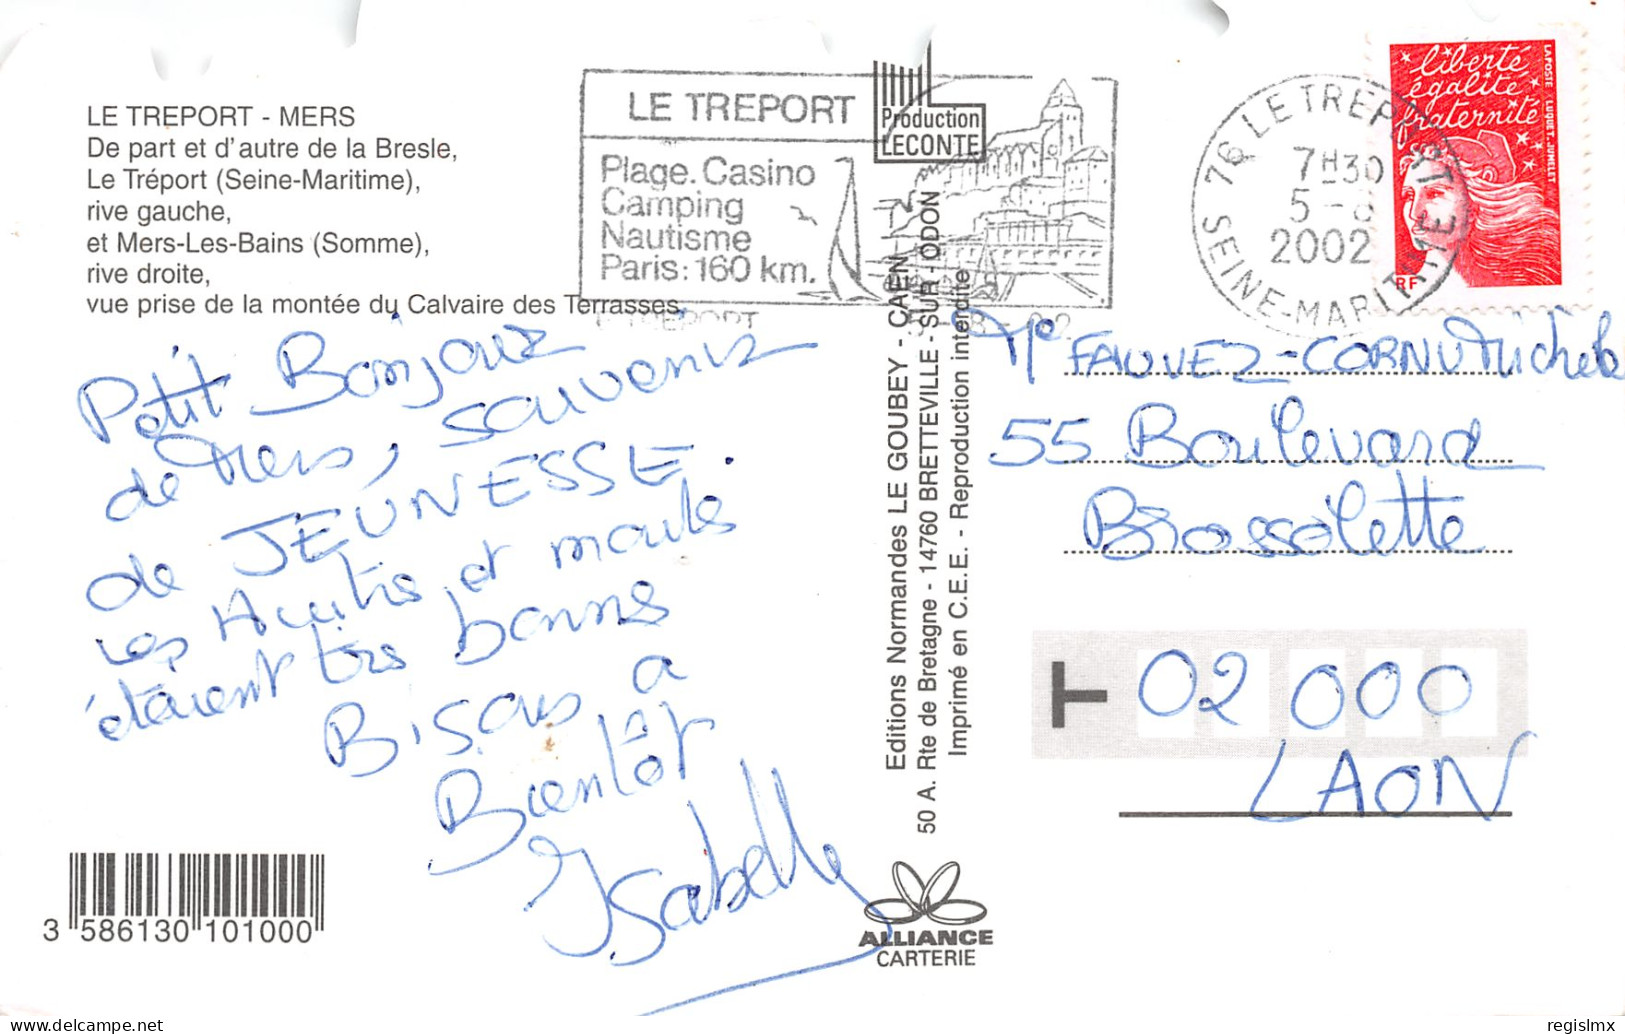 LE TREPORT - MERS
De part et d'autre de la Bresle,
Le Tréport (Seine-Maritime),
rive gauche,
et Mers-Les-Bains (Somme),
rive droite,
vue prise de la montée du Calvaire des Terrasses.
Petit Bonjour
de Mers, souvenir
de JEUNESSE.
Les Huitres et moules
étaient très bonnes
Bisous a
Bientôt
Isabelle
3 586130 101000
LE TREPORT
Plage. Casino
Camping
Nautisme
Paris: 160 km.
Production
LECONTE
Editions Normandes LE GOUBEY - CAEN
50 A. Rte de Bretagne - 14760 BRETTEVILLE - SUR - ODON
Imprimé en C.E.E. - Reproduction interdite
ALLIANCE
CARTERIE
76 LE TREPORT
7H30
5-8
2002
SEINE-MARITIME
liberté
égalité
fraternité
LA POSTE LUQUET-JUMELET
RF
Me FAUVEZ-CORNU Michele
55 Boulevard
Brossolette
T 02 000
LAON
regislmx